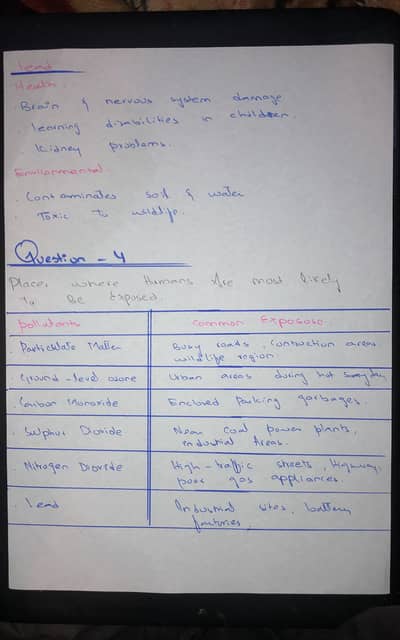 Lead
Health.
Brain & nervous system damage
. learning disabilities in children.
. Kidney problems.
Environmental.
. Contaminates soil & water
. Toxic to wildlife.
Question - 4
Place, where Humans Are most likely
To be Exposed.
pollutants common Exposuse.
. Particlate Matter Busy roads, Contruction areas
wildlife region.
. Ground-level ozone Urban areas during hot
. Carbon Monoxide Enclosed Parking garbages.
. Sulphur Dioxide Near Coal power plants,
industrial Areas.
. Nitrogen Dioxide High-traffic streets, Highway,
poor gas appliances.
. Lead Industrial sites, battery
factories.